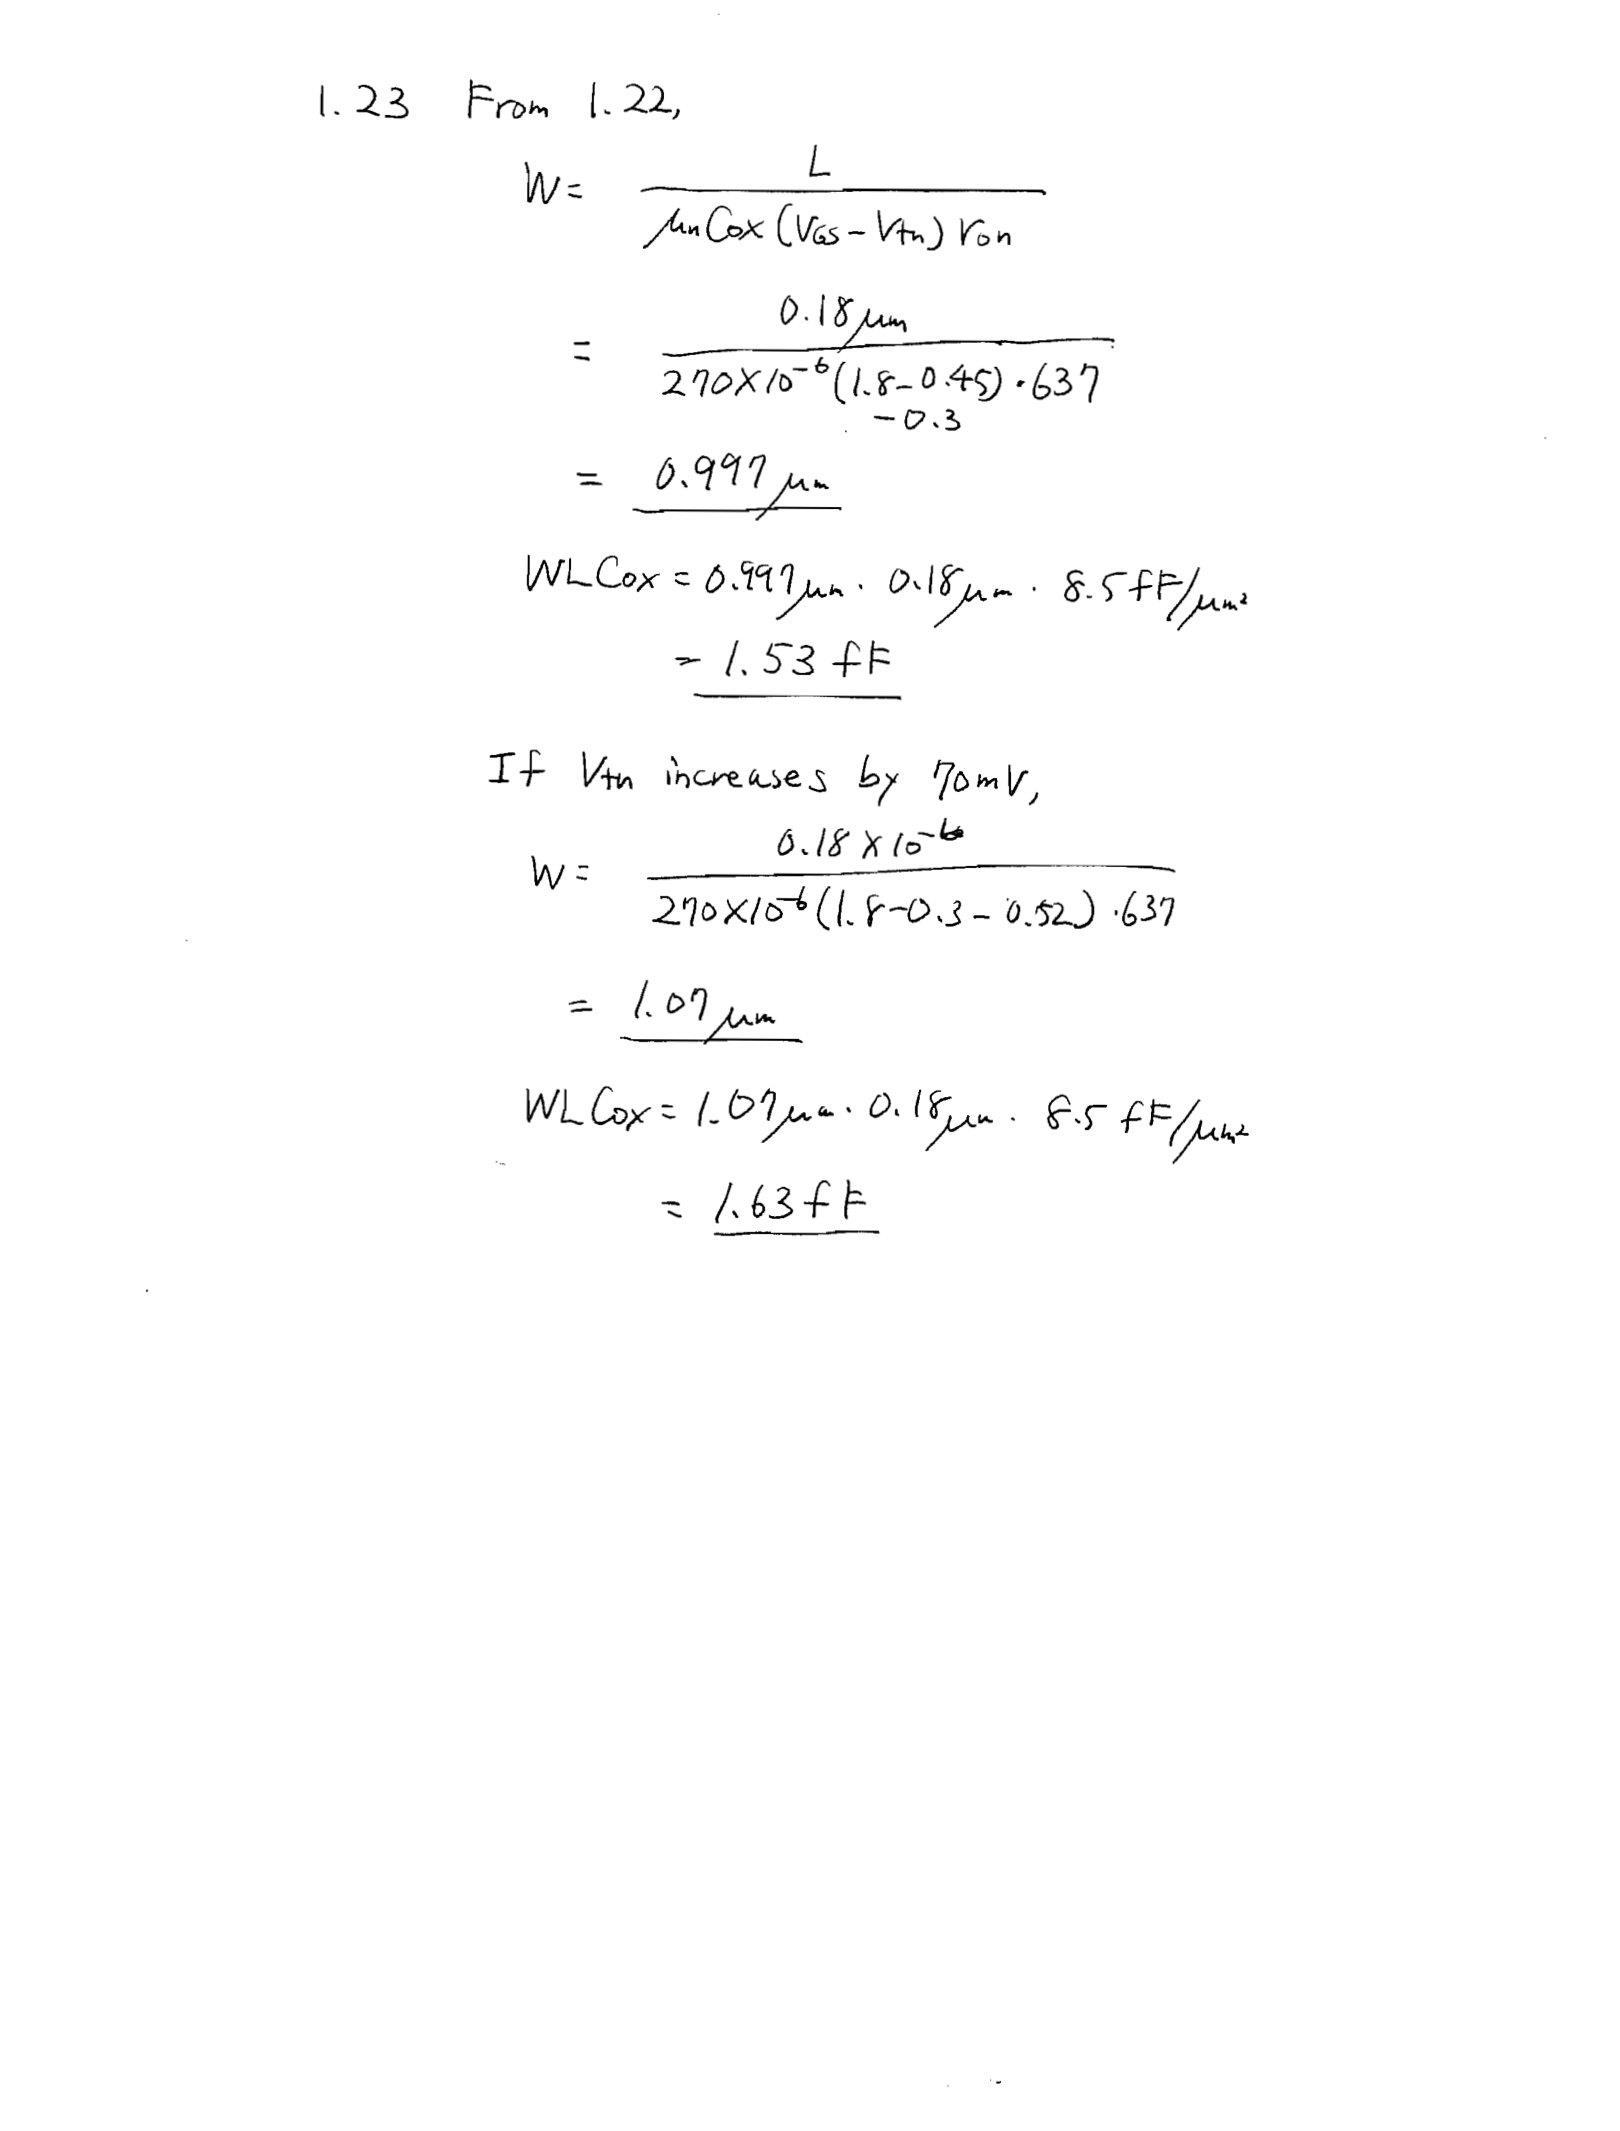 1.23 From 1.22,
W = L / μnCox (VGS - Vtn) ron
= 0.18 μm / 270×10⁻⁶ (1.8 - 0.45) · 637
- 0.3
= 0.997 μm
WLCox = 0.997 μm · 0.18 μm · 8.5 fF/μm²
= 1.53 fF
If Vtn increases by 70mV,
W = 0.18 × 10⁻⁶ / 270×10⁻⁶ (1.8-0.3-0.52) · 637
= 1.07 μm
WLCox = 1.07 μm · 0.18 μm · 8.5 fF/μm²
= 1.63 fF